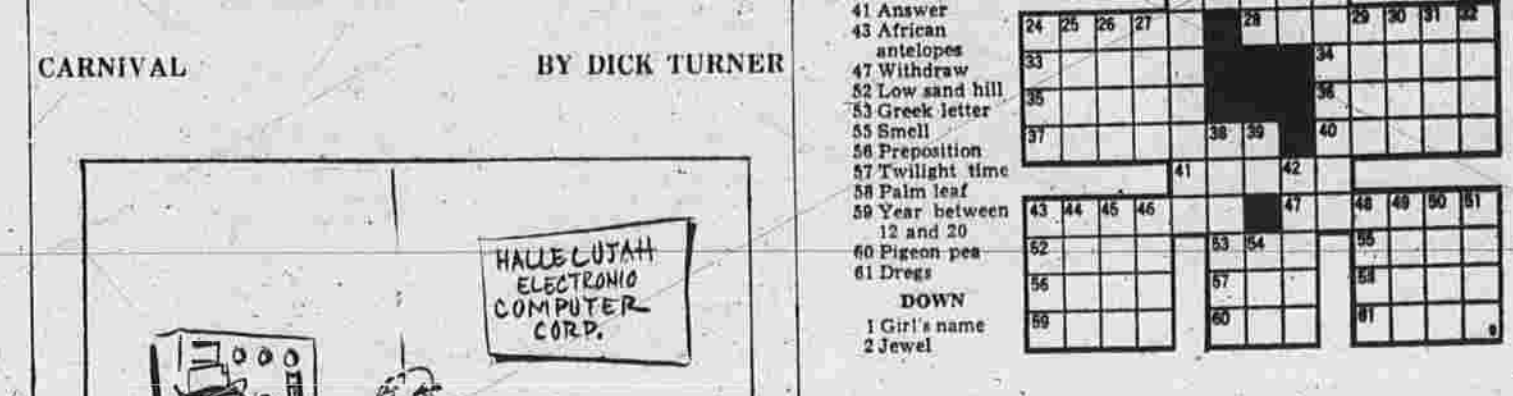 CARNIVAL
BY DICK TURNER
HALLELUJAH
ELECTRONIC
COMPUTER
CORP.
41 Answer
43 African
antelopes
47 Withdraw
52 Low sand hill
53 Greek letter
55 Smell
56 Preposition
57 Twilight time
58 Palm leaf
59 Year between
12 and 20
60 Pigeon pea
61 Dregs
DOWN
1 Girl's name
2 Jewel
24 25 26 27 28 29 30 31 32
33 34
35 36
37 38 39 40
41 42
43 44 45 46 47 48 49 50 51
52 53 54 55
56 57 58
59 60 61
9